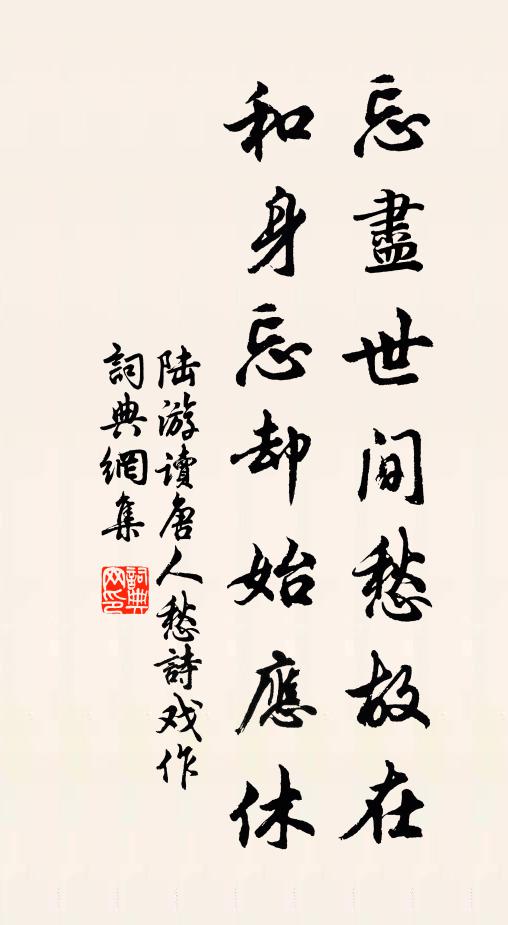 忘盡世間愁故在
和身忘却始應休
陆游讀唐人愁詩戏作
詞典網集
詞典网印